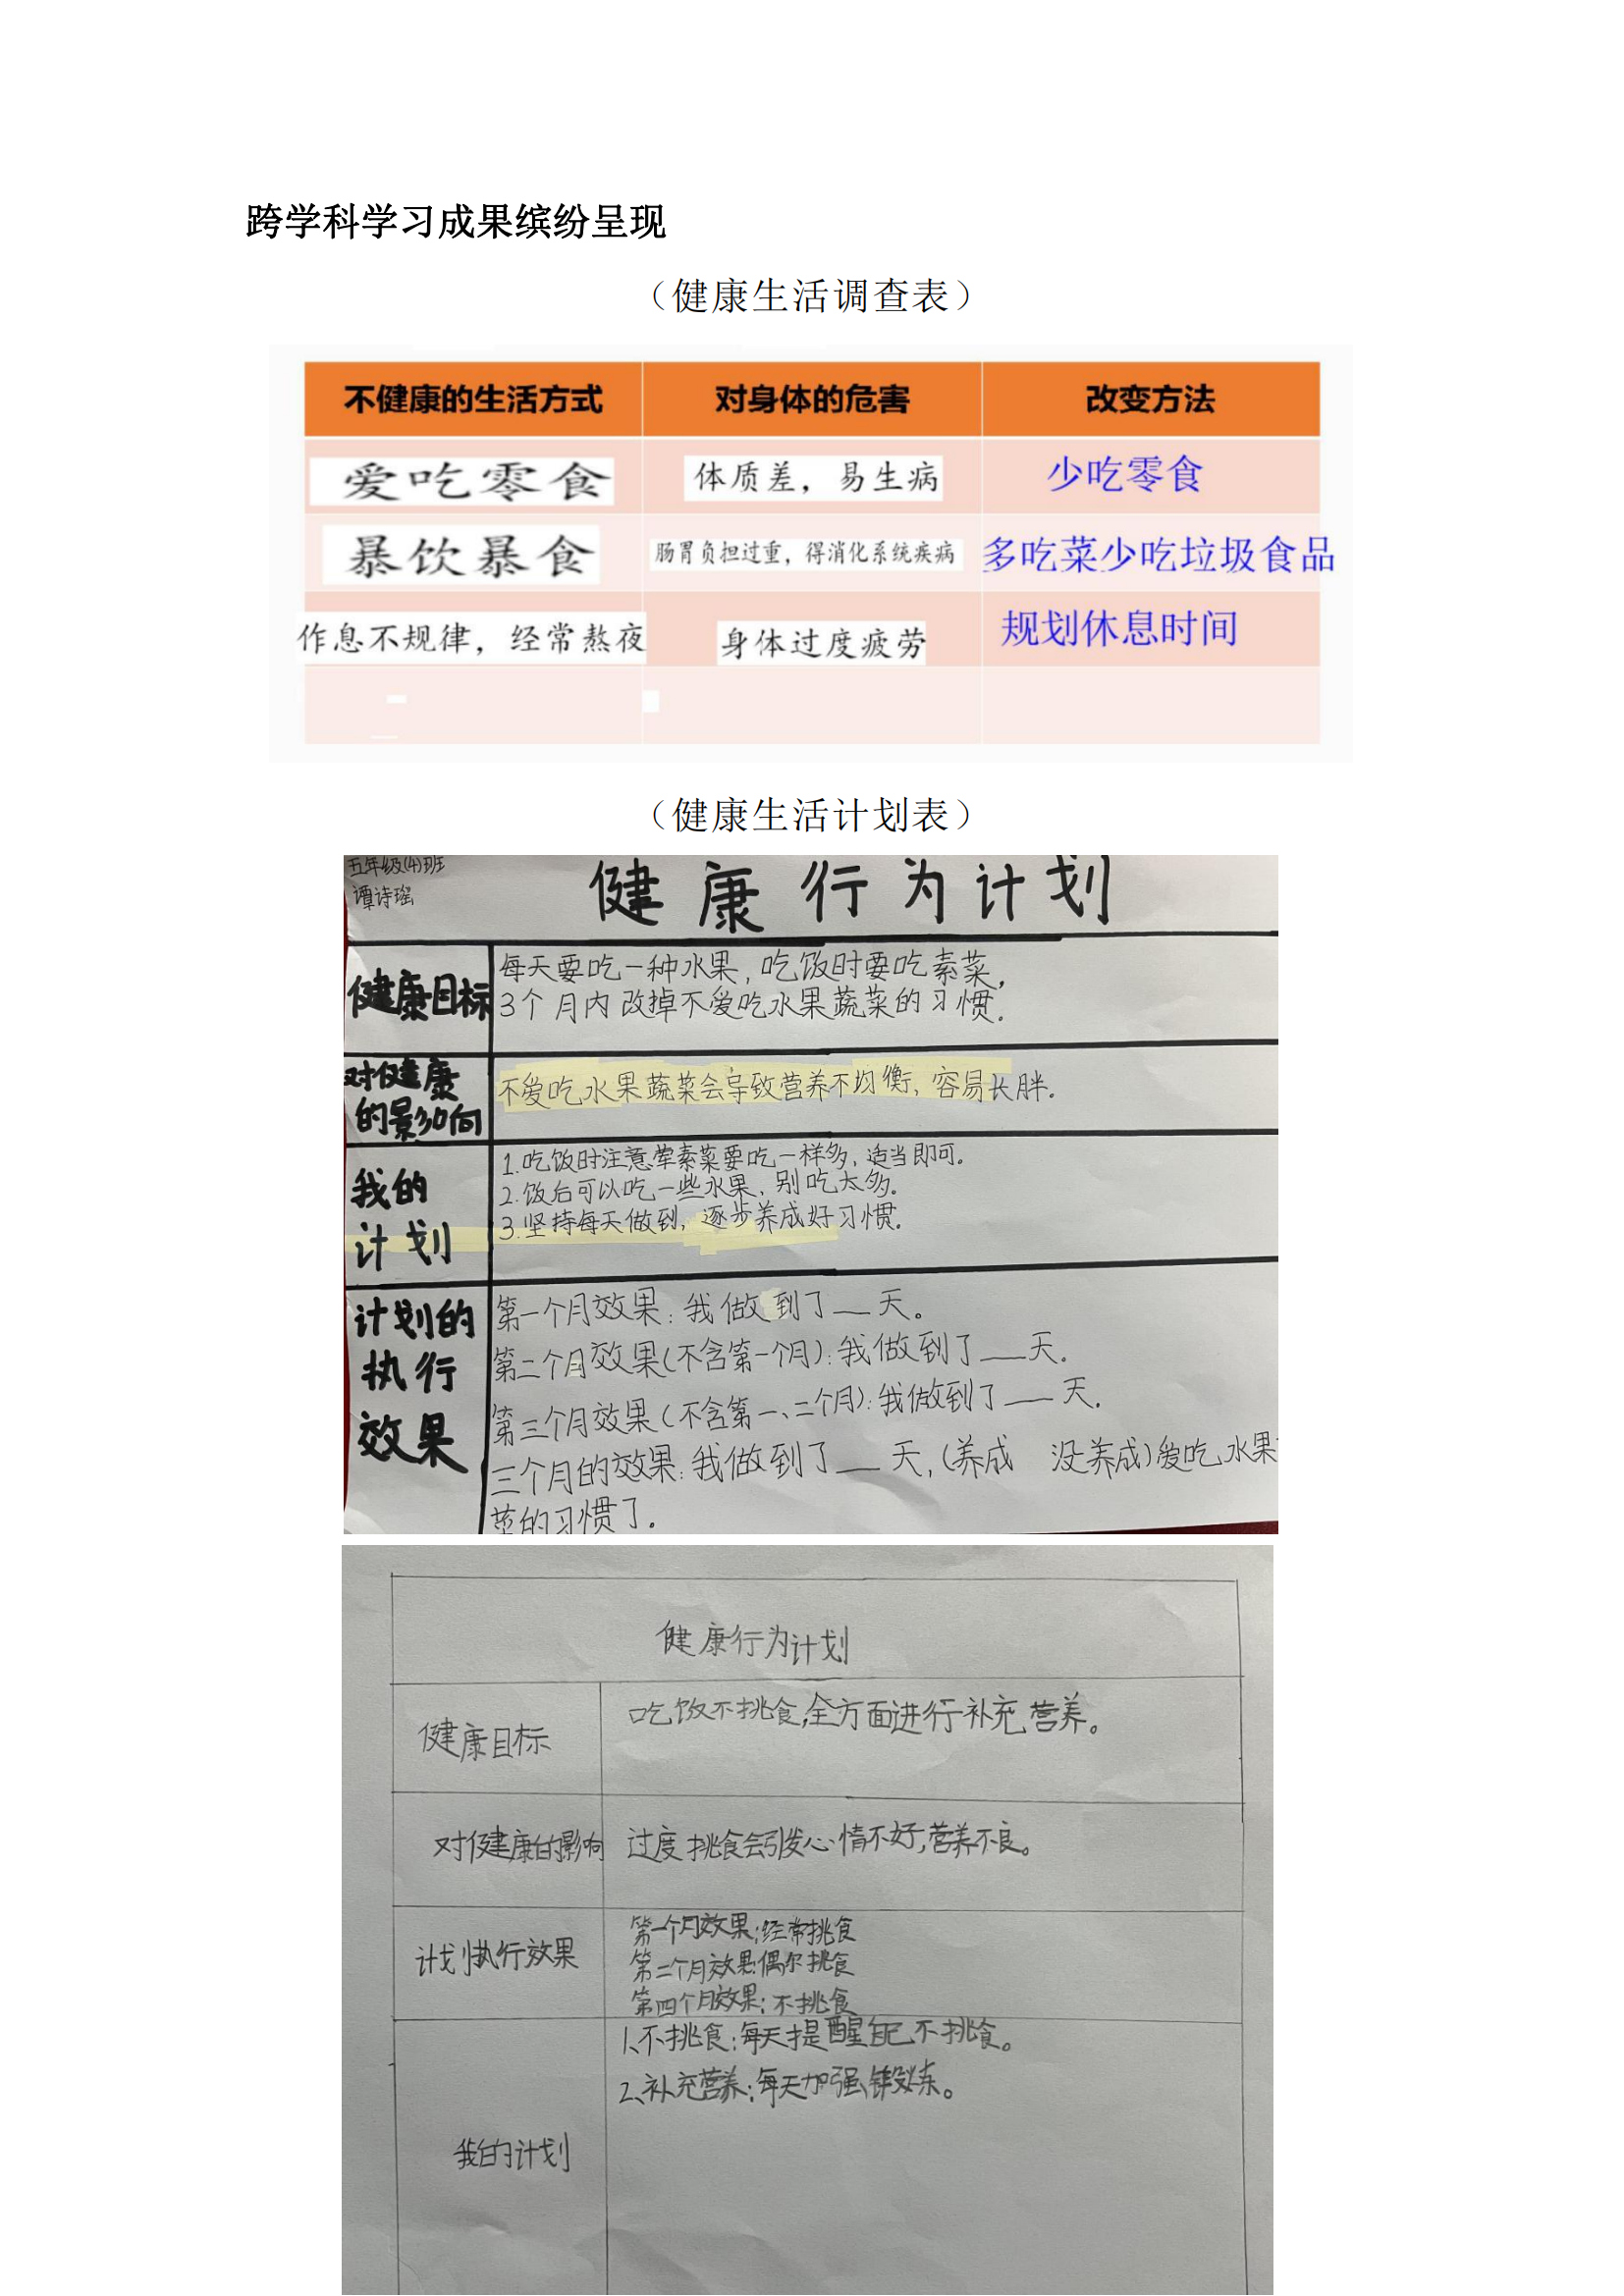 跨学科学习成果缤纷呈现
（健康生活调查表）
不健康的生活方式 对身体的危害 改变方法
爱吃零食 体质差，易生病 少吃零食
暴饮暴食 肠胃负担过重，得消化系统疾病 多吃菜少吃垃圾食品
作息不规律，经常熬夜 身体过度疲劳 规划休息时间
（健康生活计划表）
五年级(4)班
谭诗瑶
健康行为计划
健康目标
每天要吃一种水果，吃饭时要吃素菜，
3个月内改掉不爱吃水果蔬菜的习惯.
对健康
的影响
不爱吃水果蔬菜会导致营养不均衡，容易长胖.
我的
计划
1.吃饭时注意荤素菜要吃一样多，适当即可。
2.饭后可以吃一些水果，别吃太多.
3.坚持每天做到，逐步养成好习惯.
计划的
执行
效果
第一个月效果：我做到了__天。
第二个月效果(不含第一个月)：我做到了__天.
第三个月效果(不含第一、二个月)：我做到了__天.
三个月的效果：我做到了__天，(养成 没养成)爱吃水果
菜的习惯了.
健康行为计划
健康目标
吃饭不挑食,全方面进行补充营养。
对健康的影响
过度挑食会引发心情不好,营养不良。
计划执行效果
第一个月效果：经常挑食
第二个月效果：偶尔挑食
第四个月效果：不挑食
我的计划
1、不挑食：每天提醒自己不挑食。
2、补充营养：每天加强锻炼。